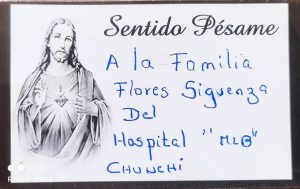 Sentido Pésame
A la Familia
Flores Siguenza
Del
Hospital "MLB"
Chunchi